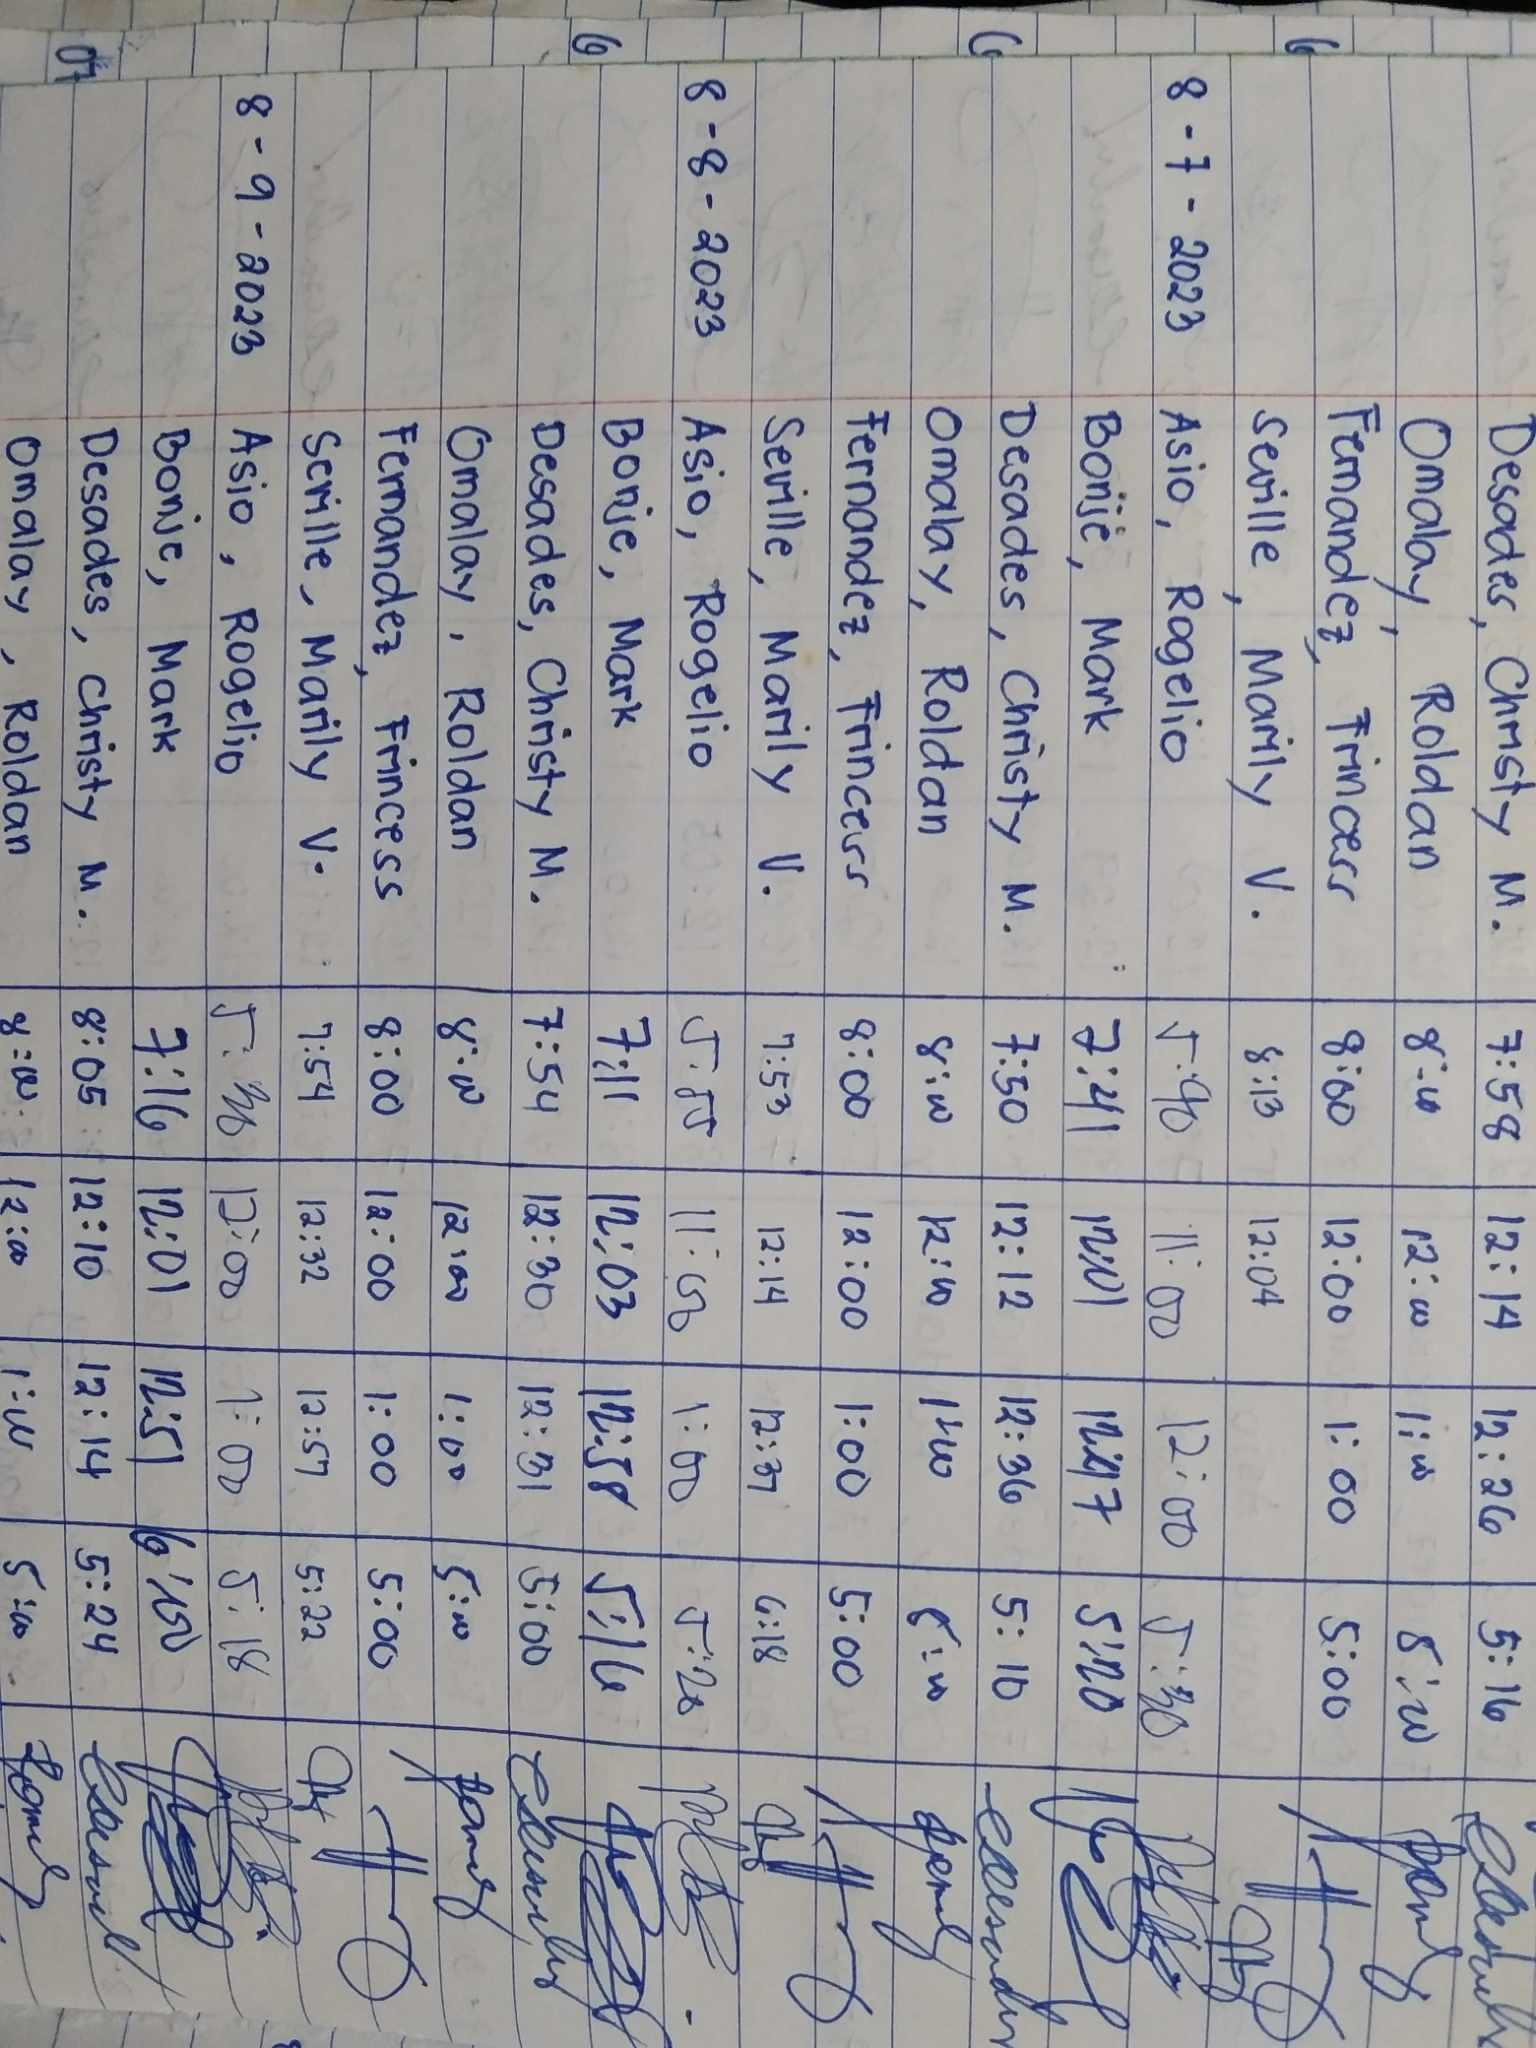 Desades, Christy M. 7:58 12:14 12:26 5:16
Omalay, Roldan 8:00 12:00 1:00 5:00
Fernandez, Princess 8:00 12:00 1:00 5:00
Seville, Marily V. 8:13 12:04
8-7-2023 Asio, Rogelio 11:00 12:00 5:30
Bonje, Mark 7:41 12:01 12:47 5:20
Desades, Christy M. 7:50 12:12 12:36 5:10
Omalay, Roldan 8:00 12:00 1:00 5:00
Fernandez, Princess 8:00 12:00 1:00 5:00
Seville, Marily V. 7:53 12:14 12:37 6:18
8-8-2023 Asio, Rogelio 5:55 1:00
Bonje, Mark 7:11 12:03 12:58 5:16
Desades, Christy M. 7:54 12:30 12:31 5:00
Omalay, Roldan 8:00 12:00 1:00 5:00
Fernandez, Princess 8:00 12:00 1:00 5:00
Seville, Marily V. 7:54 12:32 12:57 5:22
8-9-2023 Asio, Rogelio 12:00 1:00 5:18
Bonje, Mark 7:16 12:01 12:51
Desades, Christy M. 8:05 12:10 12:14 5:24
Omalay, Roldan 8:00 12:00 1:00 5:00